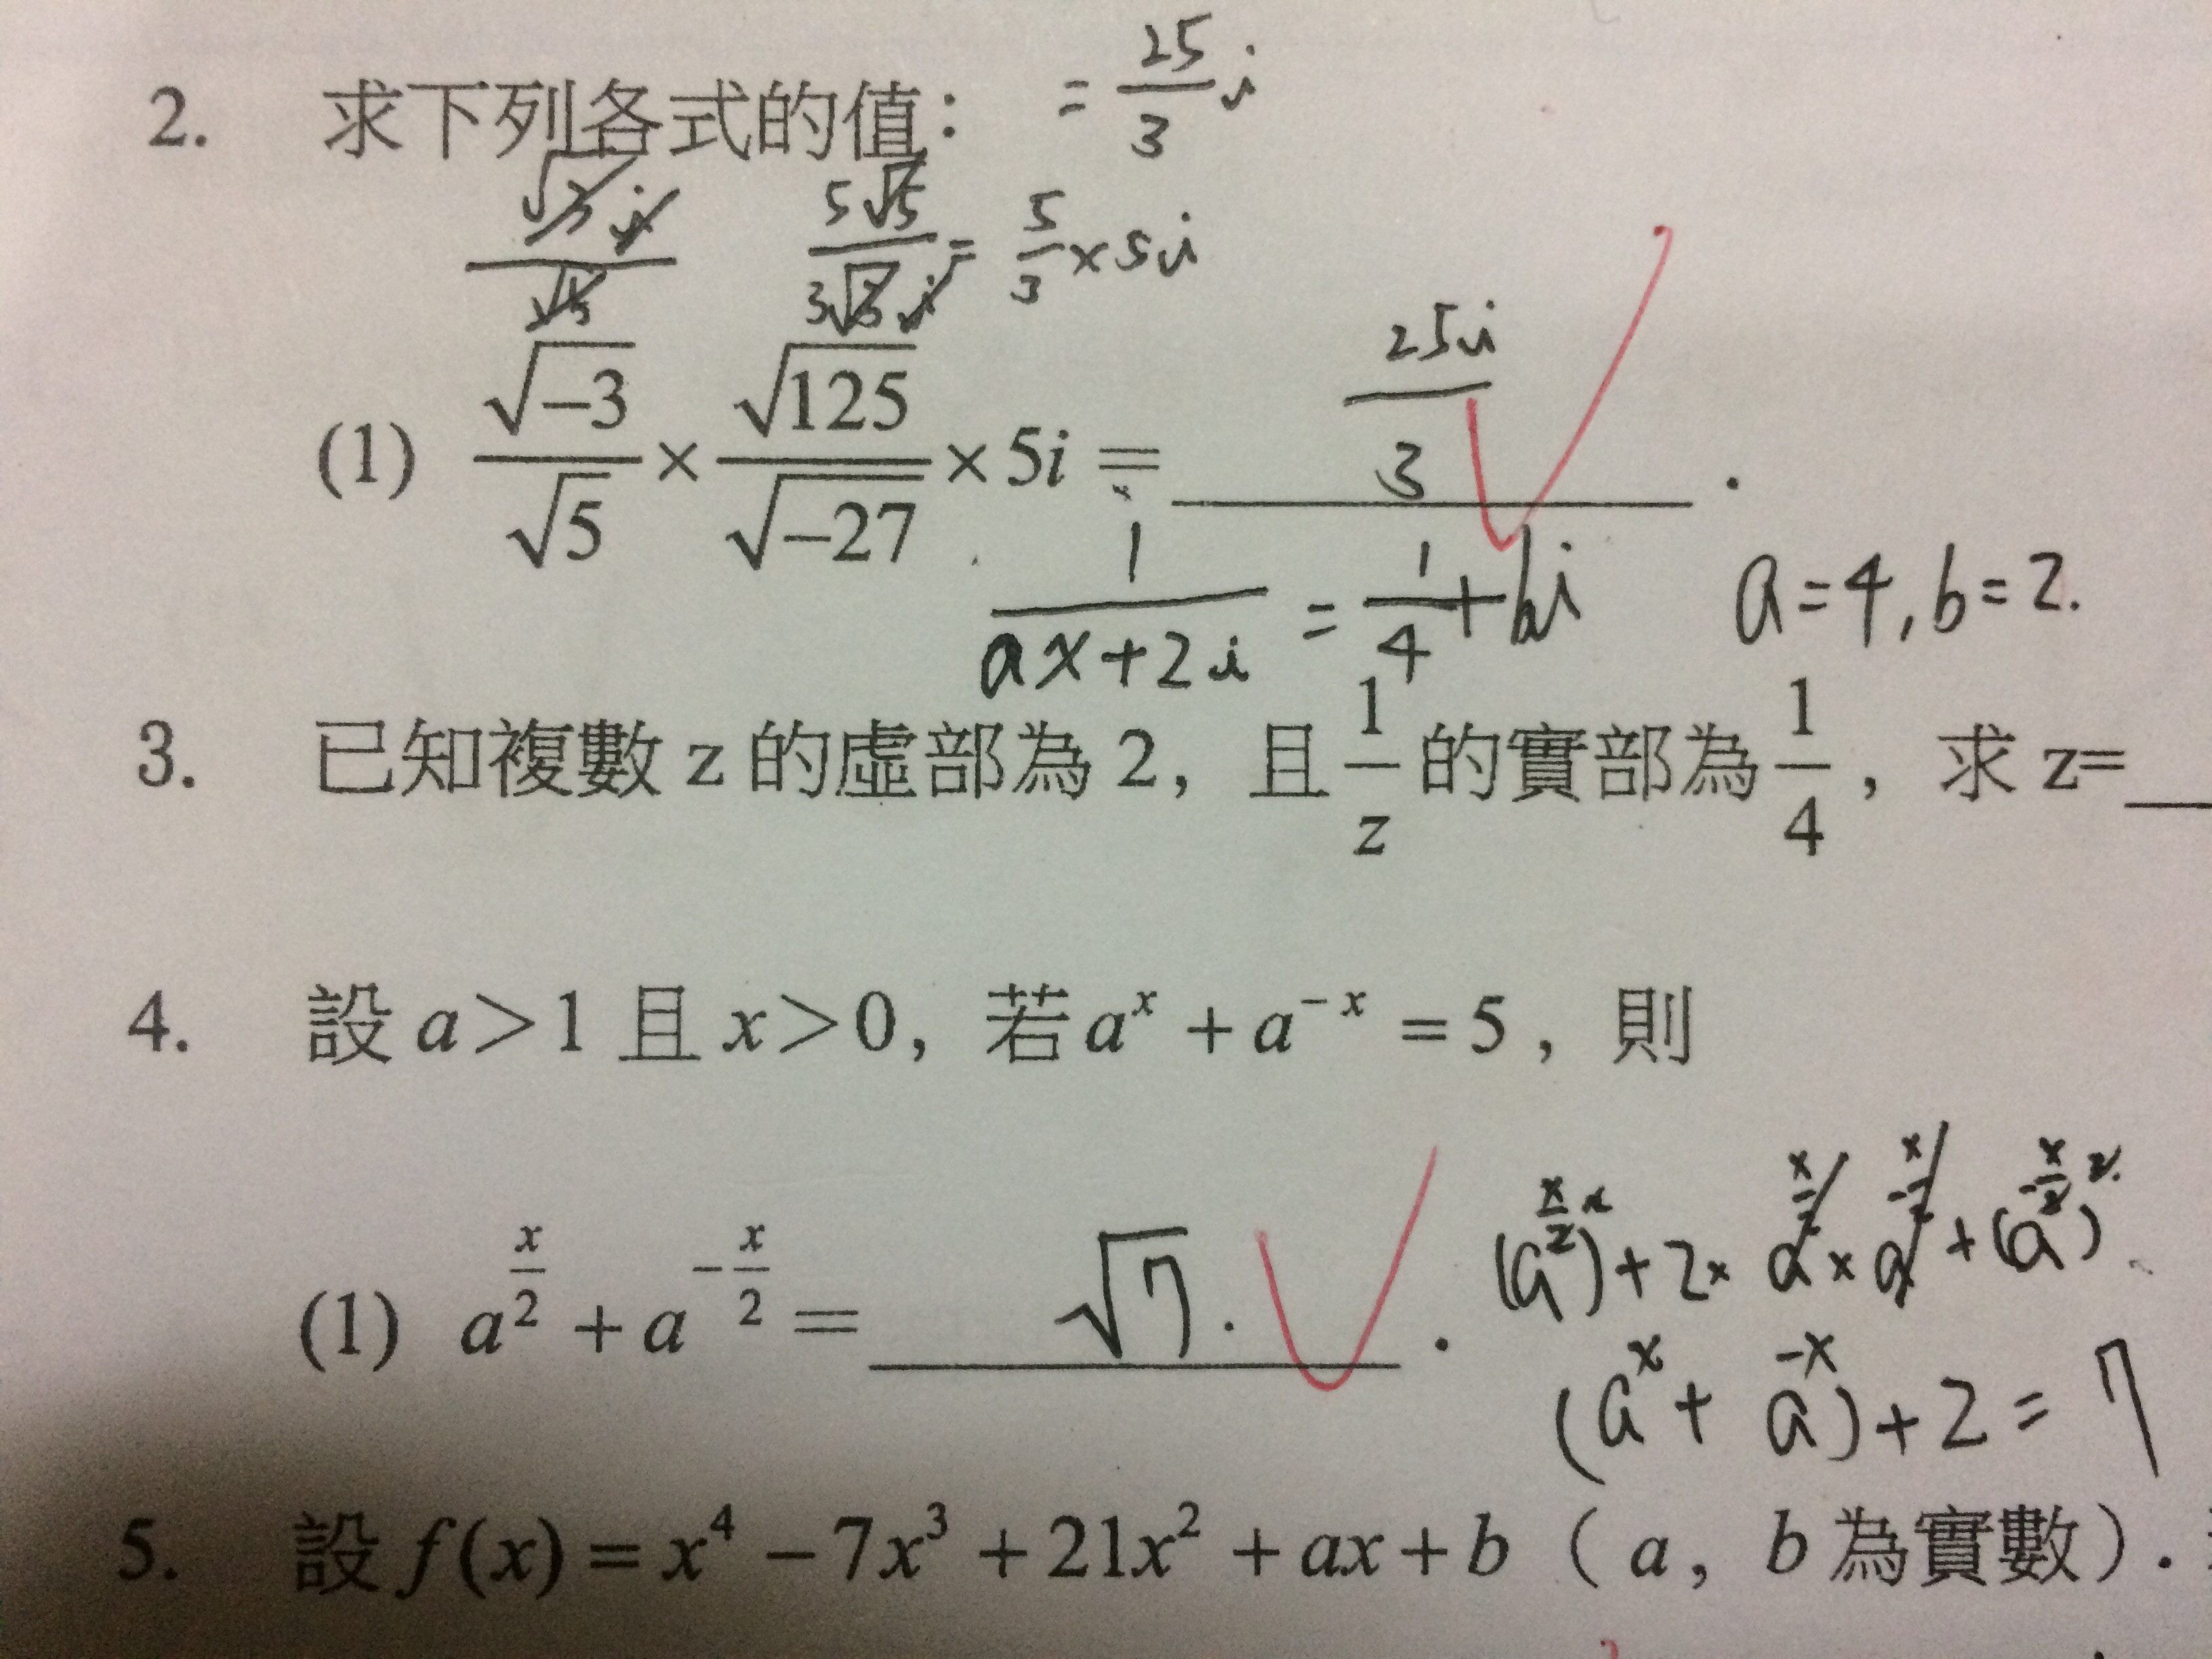 2. 求下列各式的值： = 25/3 i
√3 i/√5 5√5/3√3 i = 5/3 × 5i
(1) √-3/√5 × √125/√-27 × 5i = 25i/3 .
1/ax+2i = 1/4 + bi a=4, b=2.
3. 已知複數 z 的虛部為 2，且 1/z 的實部為 1/4，求 z=__
4. 設 a>1 且 x>0，若 a^x + a^-x = 5，則
(a^x/2)^2 + 2× a^x/2 × a^-x/2 + (a^-x/2)^2
(1) a^x/2 + a^-x/2 = √7. .
(a^x + a^-x) + 2 = 7
5. 設 f(x) = x^4 − 7x^3 + 21x^2 + ax + b（a，b 為實數）.